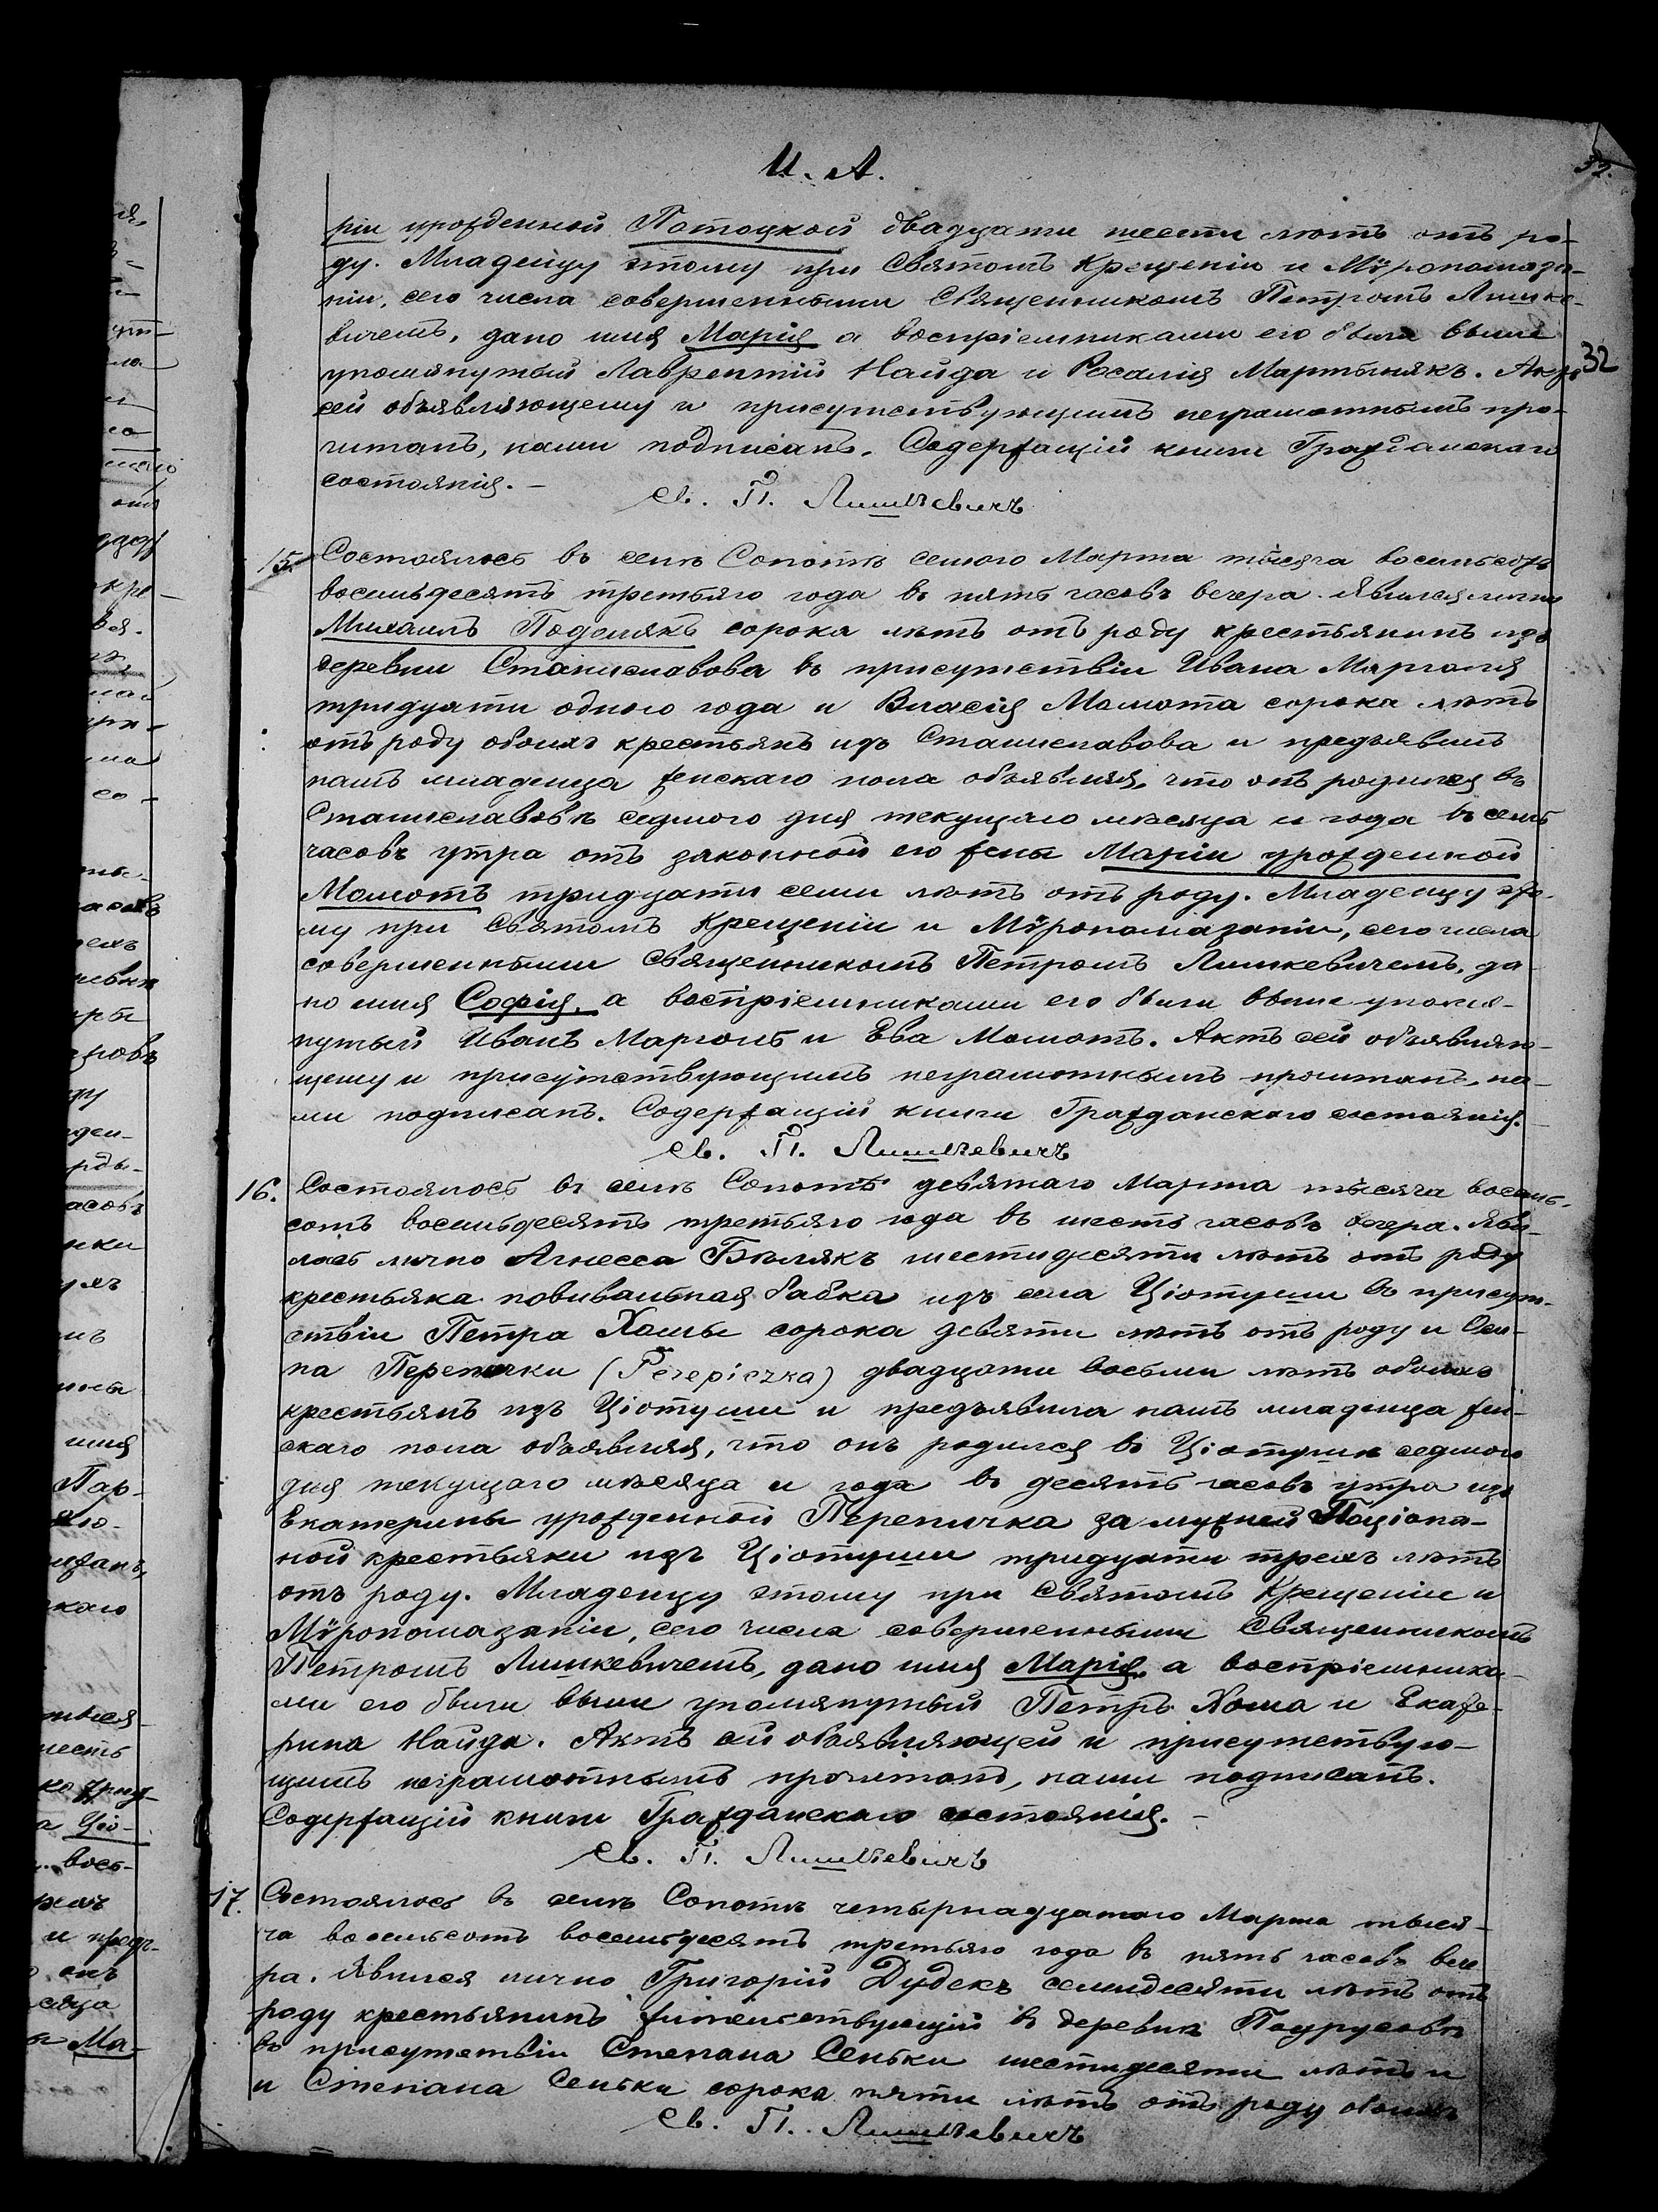 И. А.
32.
ріи урожденной Потоцкой двадцати шести лѣтъ отъ ро-
ду. Младенцу этому при Святомъ Крещеніи и Мѵропомаза-
ніи, сего числа совершенными Священникомъ Петромъ Лишке-
вичемъ, дано имя Марія а воспріемниками его были выше
32
упомянутый Лаврентій Найда и Росалія Мартынякъ. Актъ
сей объявляющему и присутствующимъ неграмотнымъ про-
читанъ, нами подписанъ. Содержащій книги Гражданскаго
состоянія. —
Св. П. Лишкевичъ
15. Состоялось въ селѣ Сопотѣ семого Марта тысяча восемьсотъ
восемьдесятъ третьяго года въ пять часовъ вечера. Явился лично
Михаилъ Подолякъ сорока лѣтъ отъ роду крестьянинъ изъ
деревни Станиславова въ присутствіи Ивана Марголя
тридцати одного года и Власія Момота сорока лѣтъ
отъ роду обоихъ крестьянъ изъ Станиславова и предъявилъ
намъ младенца женскаго пола объявляя, что онъ родился въ
Станиславовѣ седмого дня текущаго мѣсяца и года въ семь
часовъ утра отъ законной его жены Маріи урожденной
Момотъ тридцати семи лѣтъ отъ роду. Младенцу это-
му при Святомъ Крещеніи и Мѵропомазаніи, сего числа
совершенными Священникомъ Петромъ Лишкевичемъ, да-
но имя Софія, а воспріемниками его были выше упомя-
нутый Иванъ Марголь и Ева Момотъ. Актъ сей объявляю-
щему и присутствующимъ неграмотнымъ прочитанъ, на-
ми подписанъ. Содержащій книги Гражданскаго состоянія.
Св. П. Лишкевичъ
16. Состоялось въ селѣ Сопотѣ девятаго Марта тысяча восемь-
сотъ восемьдесятъ третьяго года въ шесть часовъ вечера. Яви-
лась лично Агнесса Бѣлякъ шестидесяти лѣтъ отъ роду
крестьянка повивальная бабка изъ села Ціотуши въ присут-
ствіи Петра Хомы сорока девяти лѣтъ отъ роду и Оси-
па Перепички (Perepiczka) двадцати восьми лѣтъ обоихъ
крестьянъ изъ Ціотуши и предъявила намъ младенца жен-
скаго пола объявляя, что онъ родился въ Ціотушѣ седмого
дня текущаго мѣсяца и года въ десять часовъ утра изъ
Екатерины урожденной Перепичка за мужней Паціона-
ной крестьянки изъ Ціотуши тридцати трехъ лѣтъ
отъ роду. Младенцу этому при Святомъ Крещеніи и
Мѵропомазаніи, сего числа совершенными Священникомъ
Петромъ Лишкевичемъ, дано имя Марія, а воспріемника-
ми его были выше упомянутый Петръ Хома и Екате-
рина Найда. Актъ сей объявляющей и присутствую-
щимъ неграмотнымъ прочитанъ, нами подписанъ.
Содержащій книги Гражданскаго состоянія. —
Св. П. Лишкевичъ
17. Состоялось въ селѣ Сопотѣ четырнадцатаго Марта тыся-
ча восемьсотъ восемьдесятъ третьяго года въ пять часовъ вече
ра. Явился лично Григорій Дудекъ семидесяти лѣтъ отъ
роду крестьянинъ жительствующій въ деревнѣ Паурусовѣ
въ присутствіи Степана Сеньки шестидесяти лѣтъ и
и Степана Сеньки сорока пяти лѣтъ отъ роду обоихъ
Св. П. Лишкевичъ